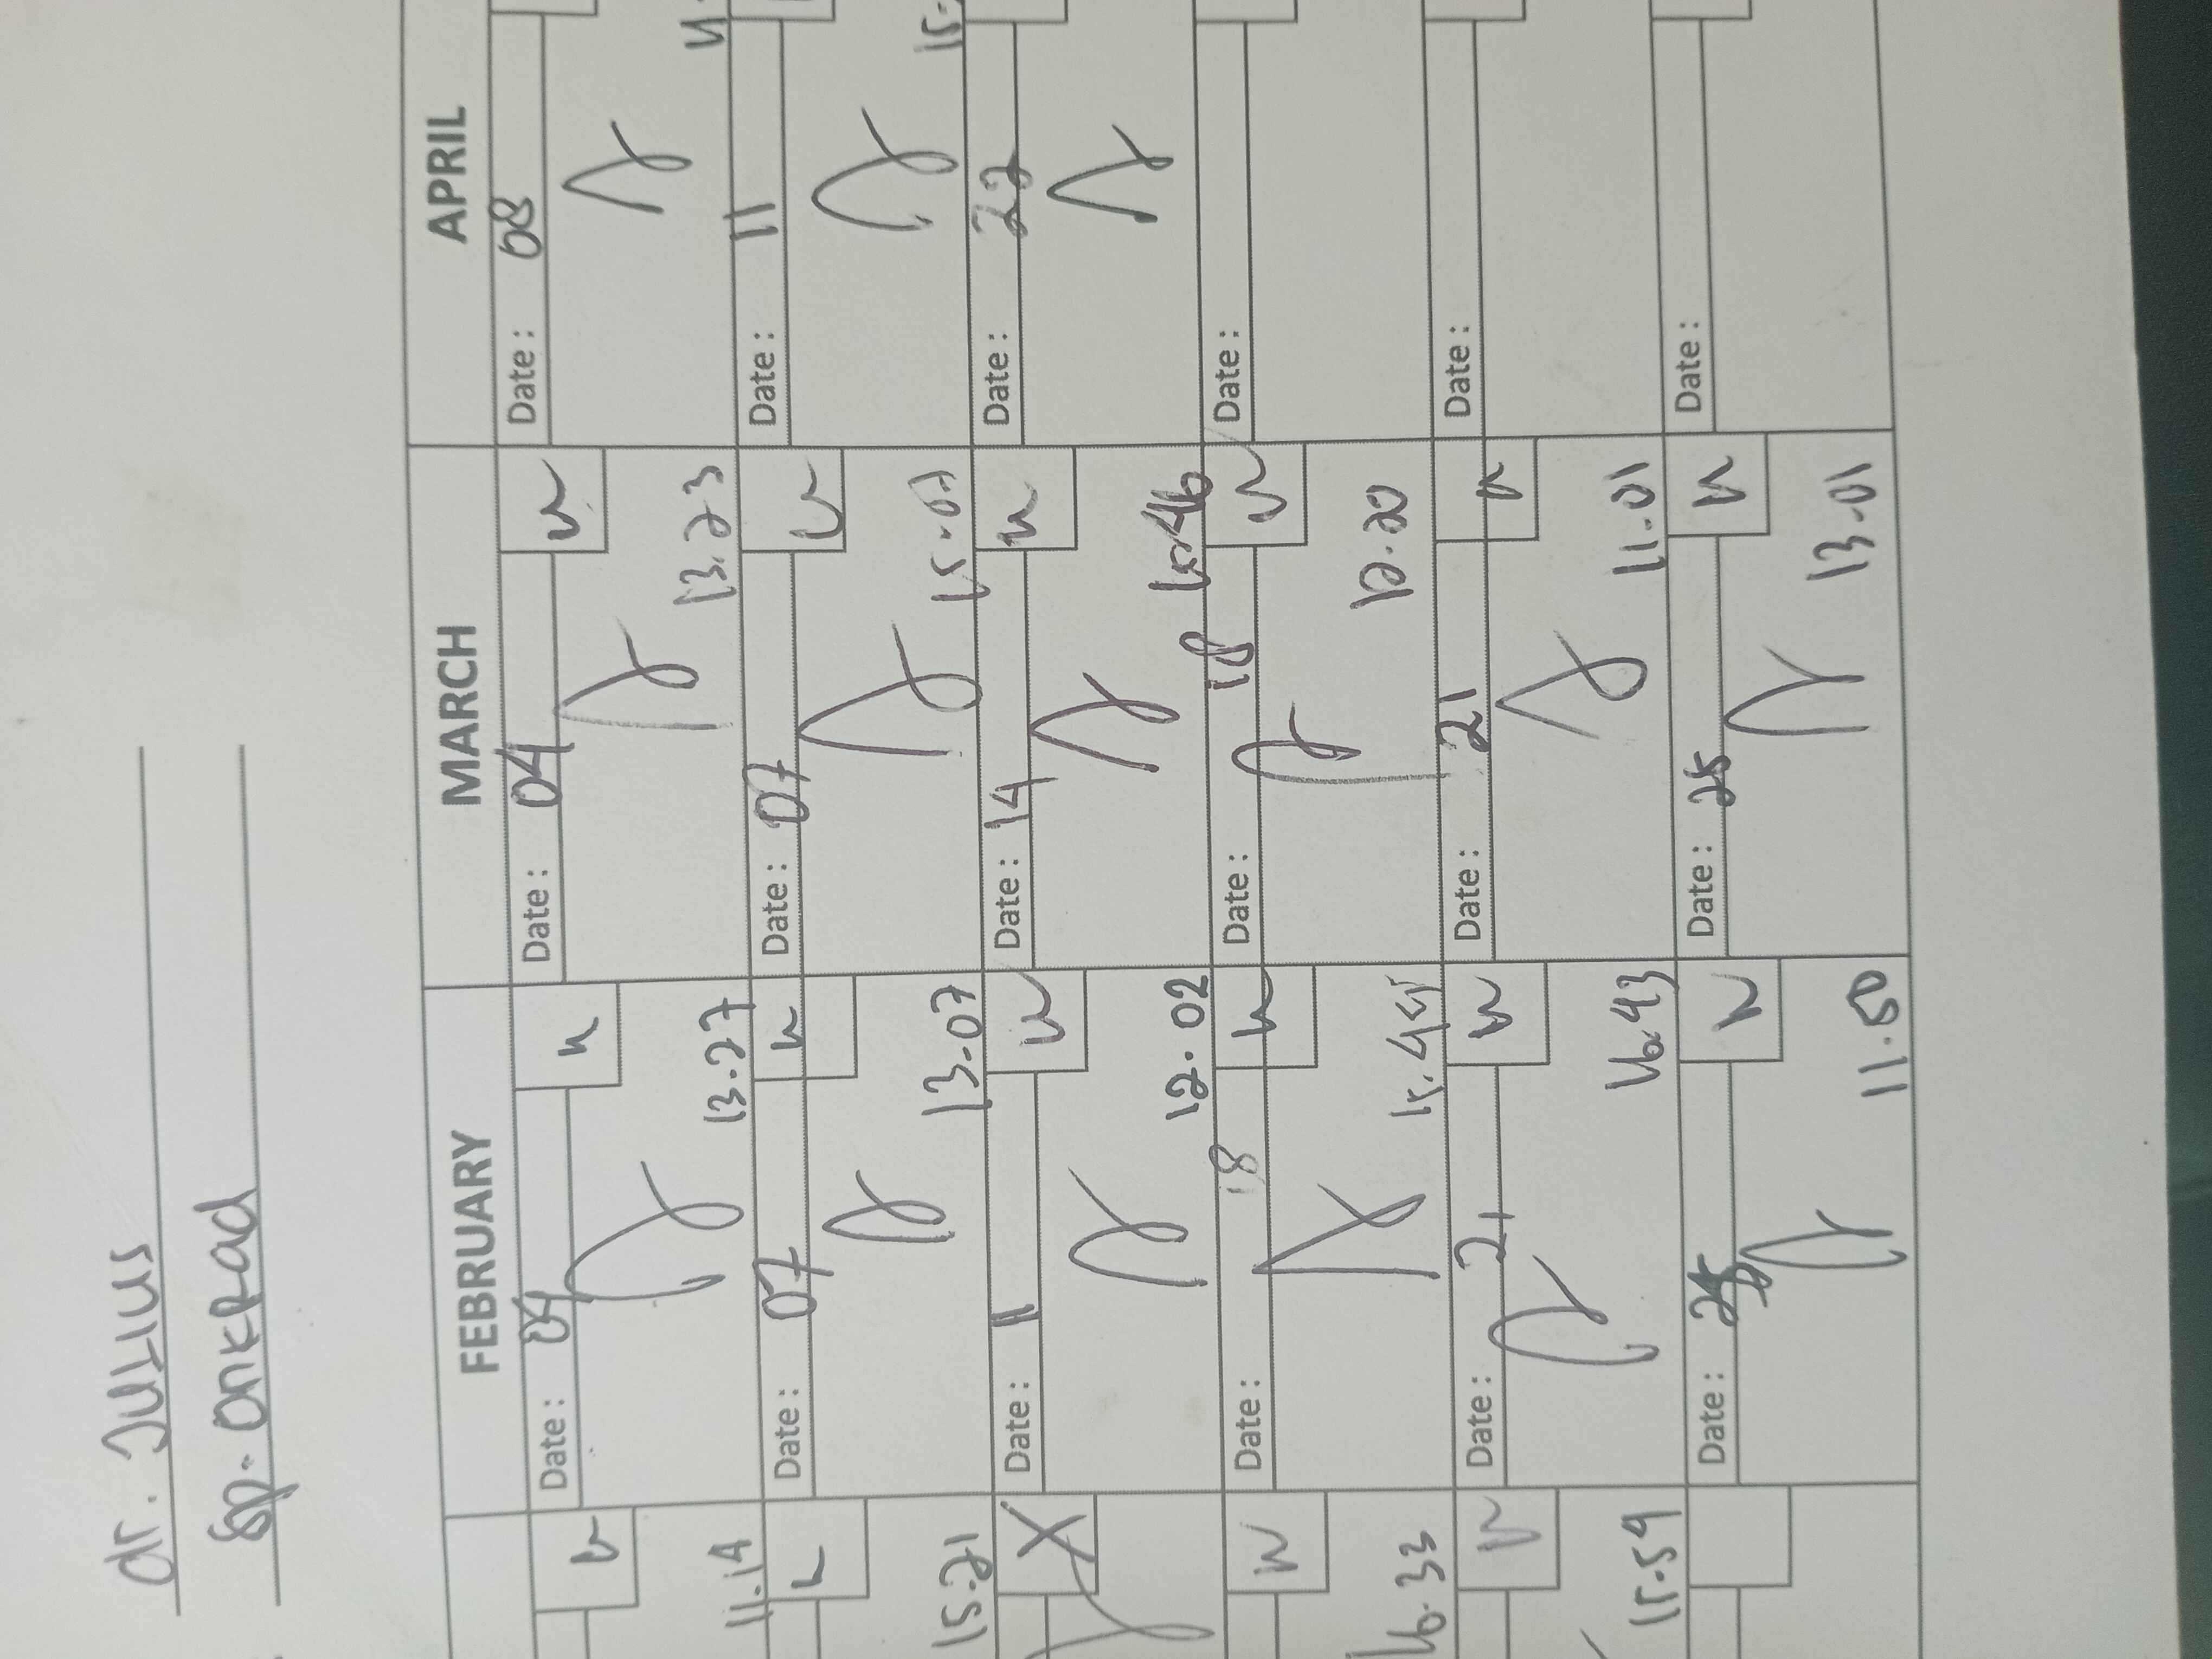 dr. Julius
Sp. OnkRad
FEBRUARY MARCH APRIL
Date : 04 Date : 04 Date : 08
11.14 13.27 13.23
Date : 07 Date : 07 Date : 11
15.21 13.07 15.07
Date : 11 Date : 14 Date : 22
12.02
Date : 18 Date : 18 Date :
16.33 12.20
Date : 21 Date : 21 Date :
15.59 16.43 11.01
Date : 25 Date : 25 Date :
11.50 13.01